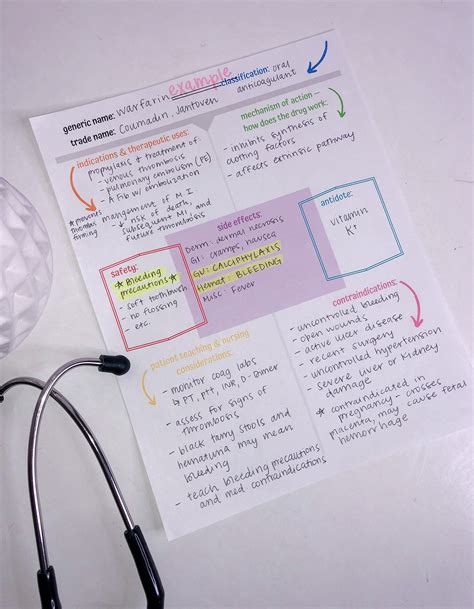 example
generic name: warfarin
classification: oral anticoagulant
trade name: Coumadin, Jantoven
indications & therapeutic uses:
propylaxis & treatment of:
- venous thrombosis
- pulmonary embolism (PE)
- A Fib w/ embolization
* prevents thrombus forming
mangement of M.I.
- ↓ risk of death, subsequent MI, and future thrombosis
mechanism of action –
how does the drug work:
- inhibits synthesis of clotting factors
- affects extrinsic pathway
safety:
* Bleeding precautions *
- soft toothbrush
- no flossing
- etc.
side effects:
Derm: dermal necrosis
GI: cramps, nausea
GU: CALCIPHYLAXIS
Hemat: BLEEDING
Misc: Fever
antidote:
vitamin
K
patient teaching & nursing
considerations:
- monitor coag labs
↳ PT, ptt, INR, D-Dimer
- assess for signs of
thrombosis
- black tarry stools and
hematuria may mean
bleeding
- teach bleeding precautions
and med contraindications
contraindications:
- uncontrolled bleeding
- open wounds
- active ulcer disease
- recent surgery
- uncontrolled hypertension
- severe liver or kidney
damage
* contraindicated in
pregnancy - crosses
placenta, may cause fetal
hemorrhage